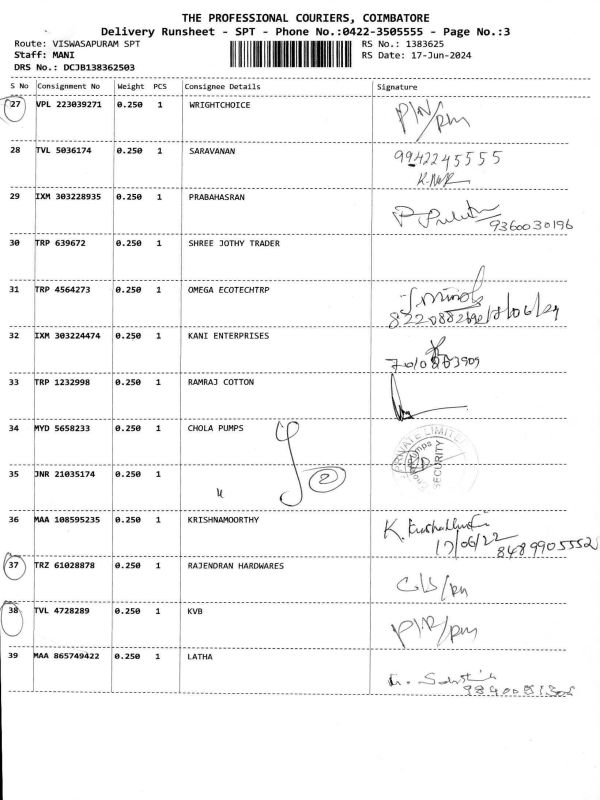 THE PROFESSIONAL COURIERS, COIMBATORE
Delivery Runsheet - SPT - Phone No.:0422-3505555 - Page No.:3
Route: VISWASAPURAM SPT RS No.: 1383625
Staff: MANI RS Date: 17-Jun-2024
DRS No.: DCJB138362503
S No Consignment No Weight PCS Consignee Details Signature
27 VPL 223039271 0.250 1 WRIGHTCHOICE
28 TVL 5036174 0.250 1 SARAVANAN 9942245555
29 IXM 303228935 0.250 1 PRABAHASRAN
9360030196
30 TRP 639672 0.250 1 SHREE JOTHY TRADER
31 TRP 4564273 0.250 1 OMEGA ECOTECHTRP
32 IXM 303224474 0.250 1 KANI ENTERPRISES
33 TRP 1232998 0.250 1 RAMRAJ COTTON
34 MYD 5658233 0.250 1 CHOLA PUMPS PRIVATE LIMITED
SECURITY
35 JNR 21035174 0.250 1 2
36 MAA 108595235 0.250 1 KRISHNAMOORTHY K.
17/06/22 8489905552
37 TRZ 61028878 0.250 1 RAJENDRAN HARDWARES
38 TVL 4728289 0.250 1 KVB
39 MAA 865749422 0.250 1 LATHA